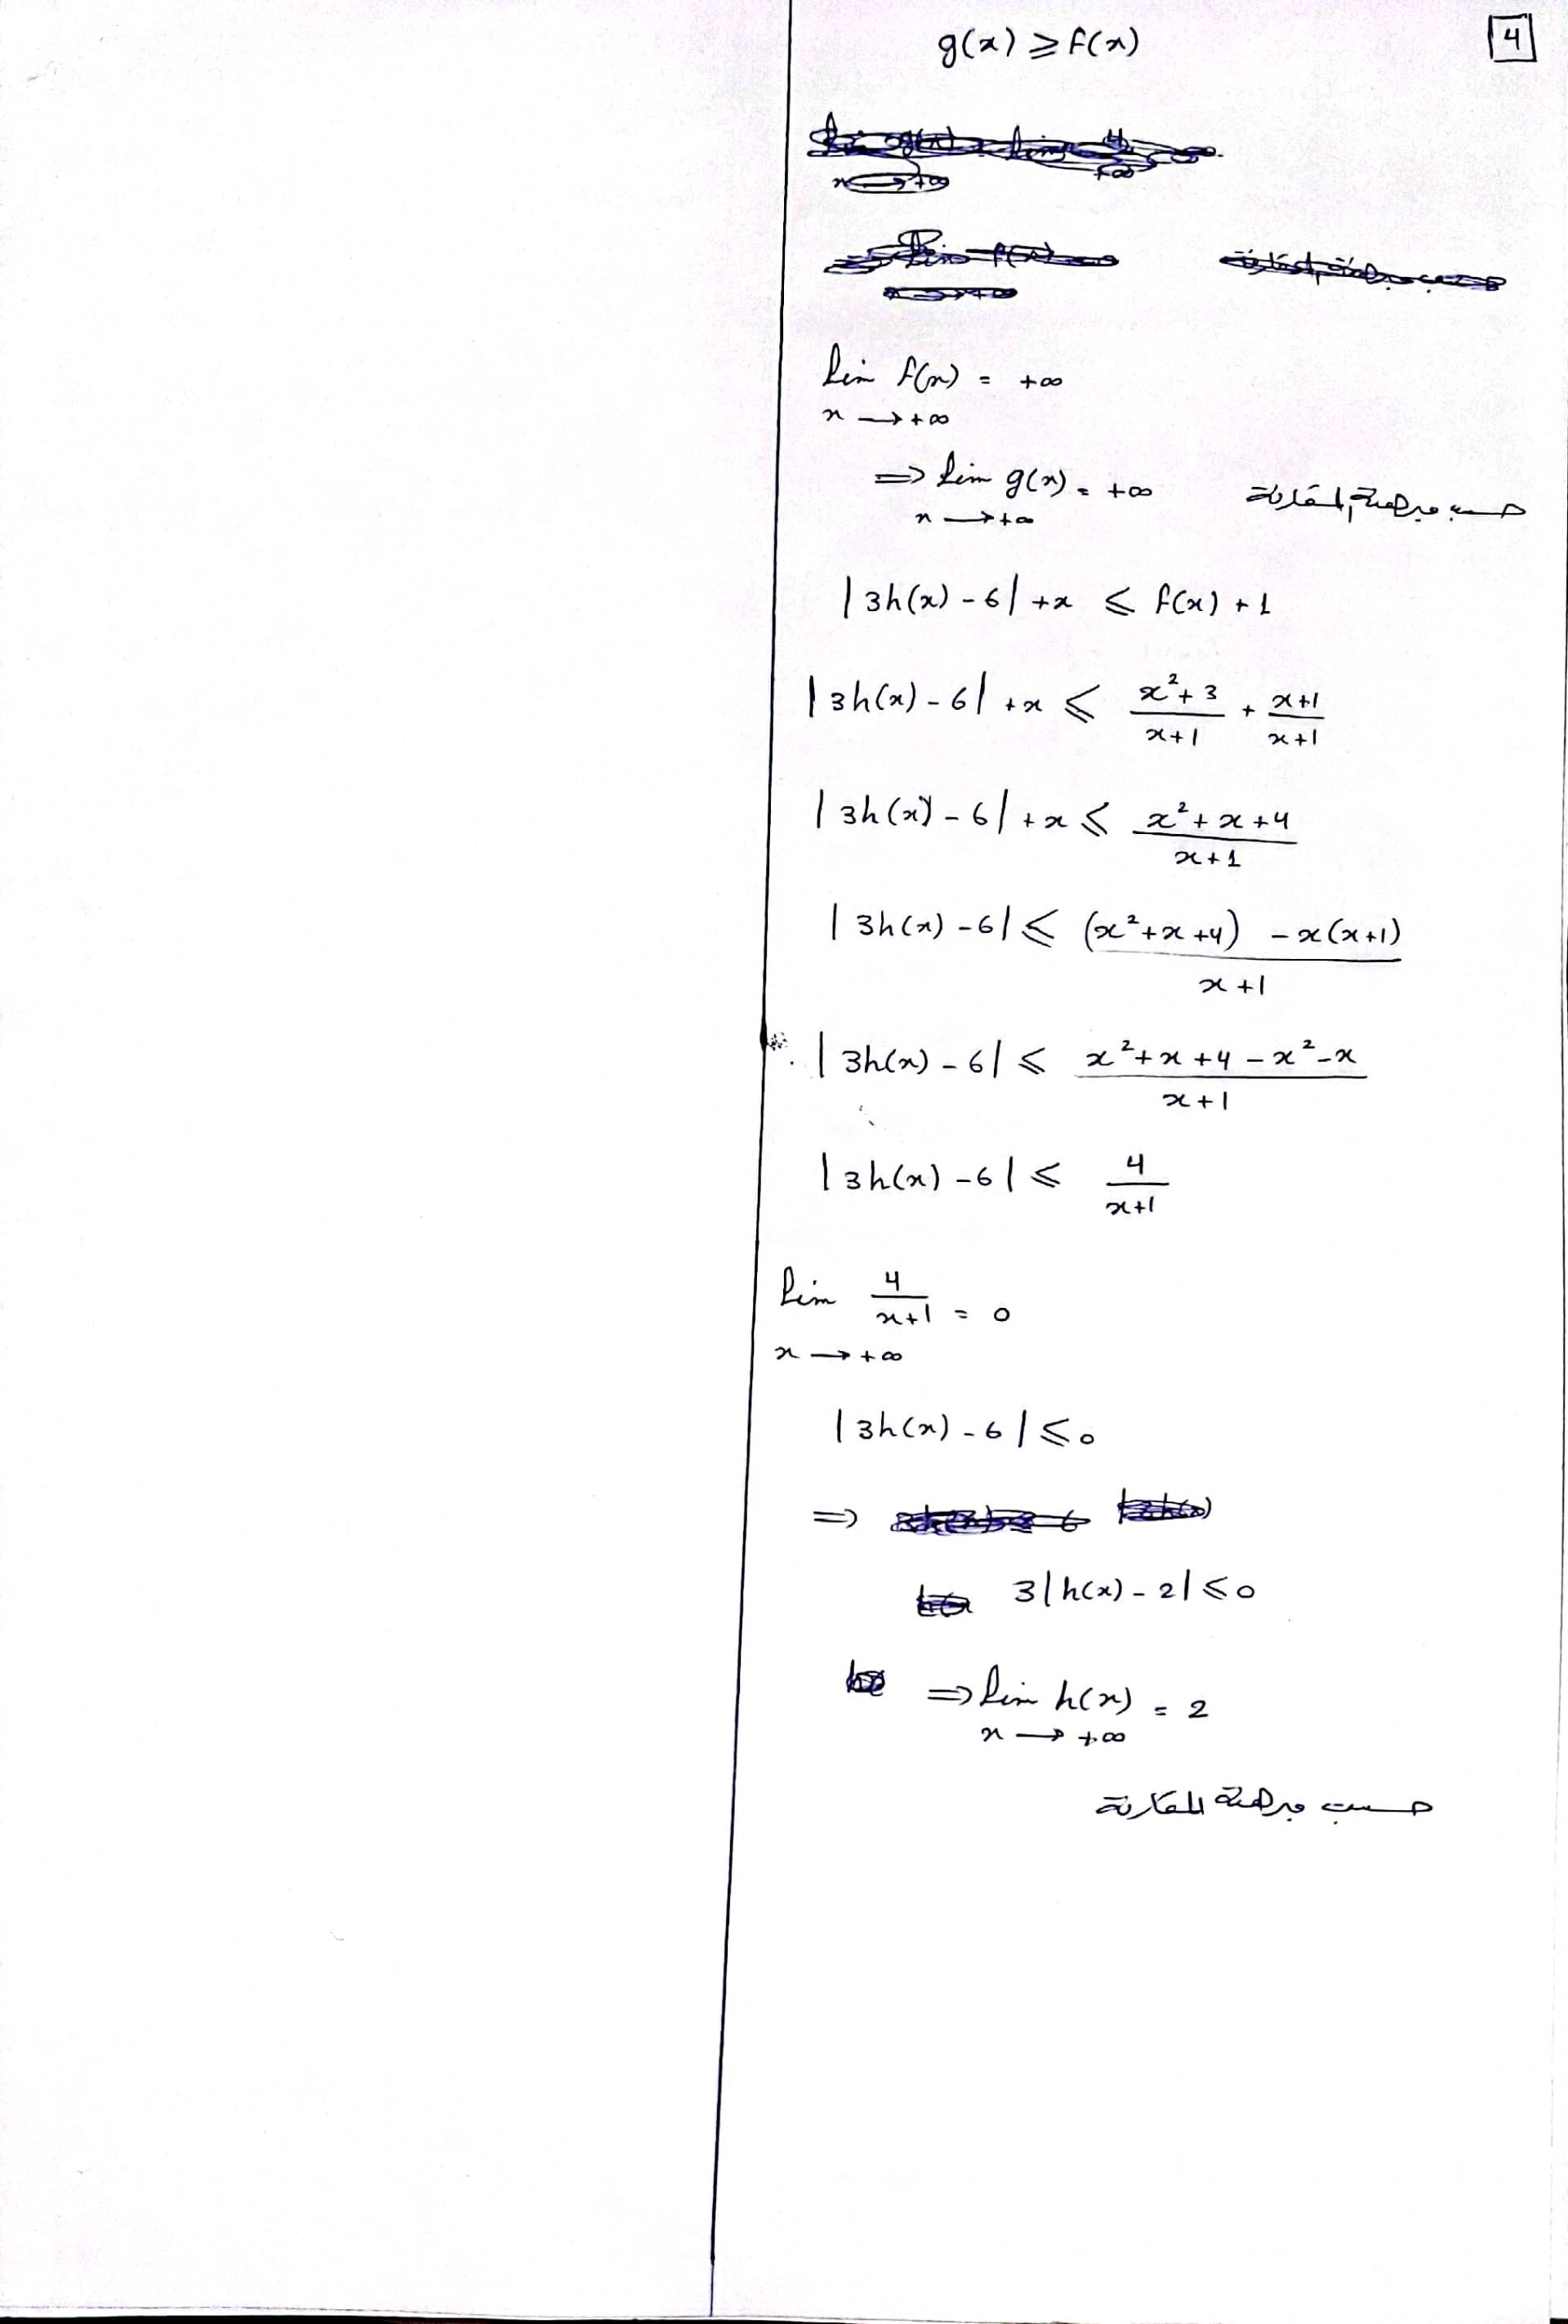 g(x) ⩾ f(x)
4
lim f(x) = +∞
x → +∞
⇒ lim g(x) = +∞ حسب مبرهنة المقارنة
x → +∞
|3h(x) - 6| + x ⩽ f(x) + 1
|3h(x) - 6| + x ⩽ (x² + 3)/(x + 1) + (x + 1)/(x + 1)
|3h(x) - 6| + x ⩽ (x² + x + 4)/(x + 1)
|3h(x) - 6| ⩽ ((x² + x + 4) - x(x + 1))/(x + 1)
|3h(x) - 6| ⩽ (x² + x + 4 - x² - x)/(x + 1)
|3h(x) - 6| ⩽ 4/(x + 1)
lim 4/(x + 1) = 0
x → +∞
|3h(x) - 6| ⩽ 0
⇒
3|h(x) - 2| ⩽ 0
⇒ lim h(x) = 2
x → +∞
حسب مبرهنة المقارنة